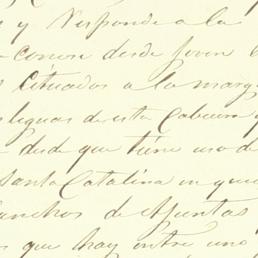 y Responde a la
conoce desde joven
situados a la marg
leguas de esta Cabecera y
desde que tiene uso de
Santa Catalina en que
Ranchos de Apuntas
que hay entre uno